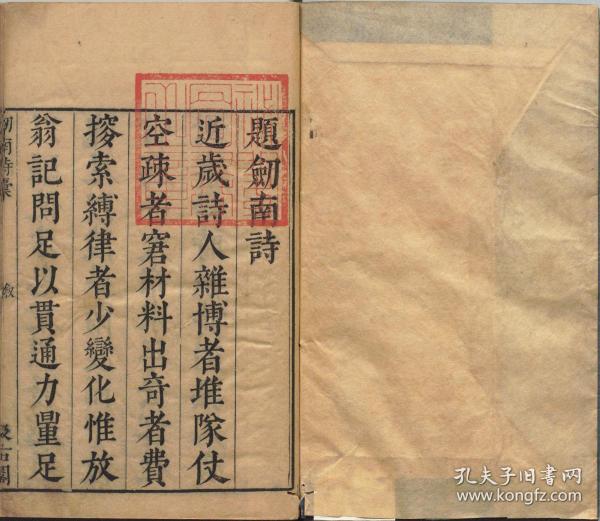 題劒南詩
近歲詩人雜博者堆隊仗
空疎者窘材料出奇者費
搜索縛律者少變化惟放
翁記問足以貫通力量足
劒南詩稾
敘
汲古閣
孔夫子旧书网
www.kongfz.com